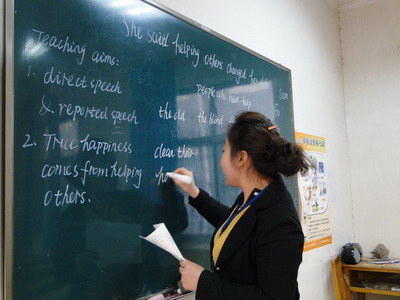 She said helping others changed her
Teaching aims:
1. direct speech
& reported speech
people who need help
the old the blind
2. True happiness
comes from helping
others.
clean their